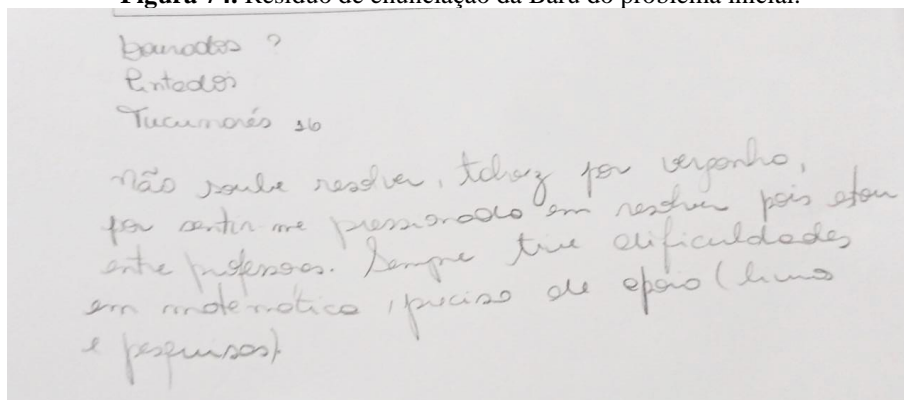 Figura 74. Resíduo de enunciação da Baru do problema inicial.
Dourados ?
Pintados
Tucunarés 16
não soube resolver, talvez por vergonha,
por sentir me pressionado em resolver pois estou
entre professores. Sempre tive dificuldades
em matemática, preciso de apoio (livros
e pesquisas).